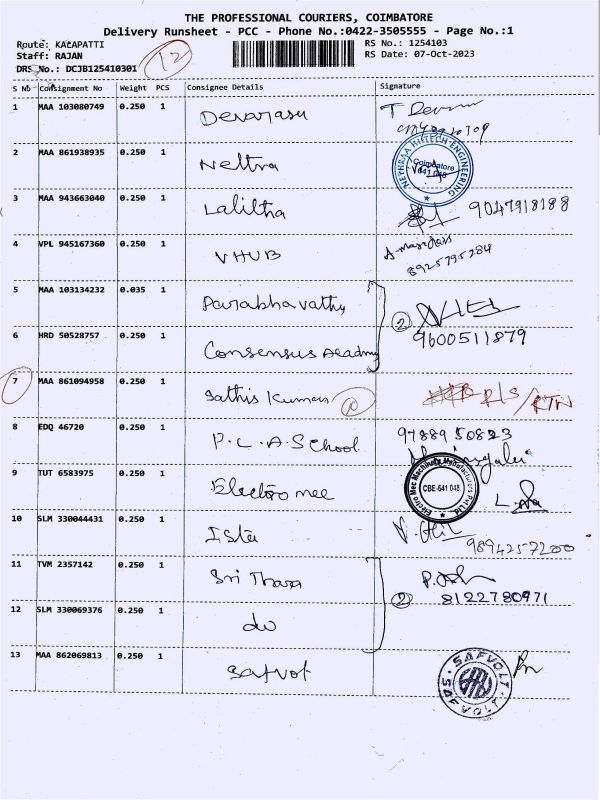 THE PROFESSIONAL COURIERS, COIMBATORE
Delivery Runsheet - PCC - Phone No.:0422-3505555 - Page No.:1
Route: KALAPATTI
Staff: RAJAN
DRS No.: DCJB125410301
12
RS No.: 1254103
RS Date: 07-Oct-2023
S No Consignment No Weight PCS Consignee Details Signature
1 MAA 103080749 0.250 1 Devarasu
2 MAA 861938935 0.250 1 Nethra
NETHRAA HITECH ENGINEERING
Coimbatore
641 048
3 MAA 943663040 0.250 1 Lalitha 9047918188
4 VPL 945167360 0.250 1 VHUB
8925795284
5 MAA 103134232 0.035 1 Parabhavathy
2
6 HRD 50528757 0.250 1 Consensus Acadmy 9600511879
7 MAA 861094958 0.250 1 Sathis Kumar R/S/RTN
8 EDQ 46720 0.250 1 P.C.A.School 9788950823
9 TUT 6583975 0.250 1 Electro mec
Electro Mec Machinery Manufacturers Pvt Ltd
CBE-641 048.
10 SLM 330044431 0.250 1 9894257200
11 TVM 2357142 0.250 1 Sri Thara
2 8122780971
12 SLM 330069376 0.250 1 do
13 MAA 862069813 0.250 1 Safvolt
SAFVOLT
SAFVOLT